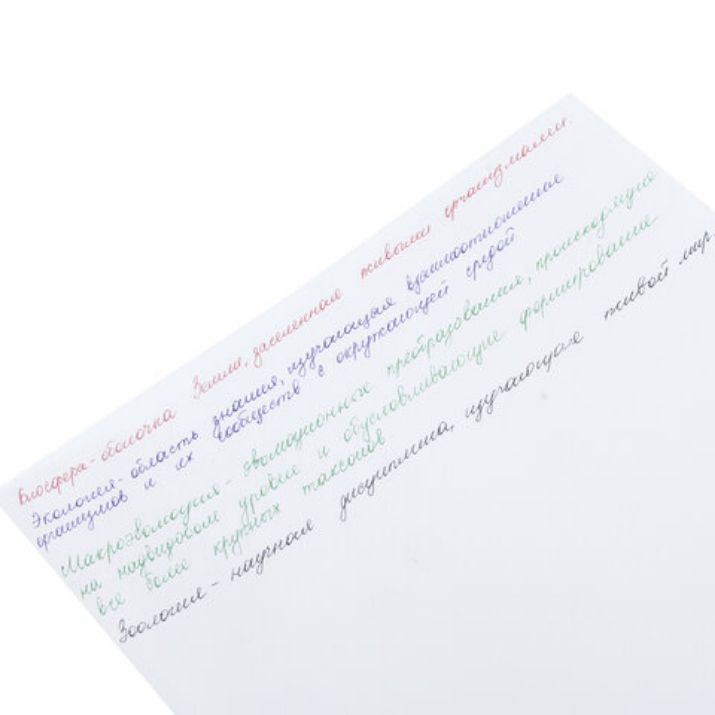 Биосфера - оболочка Земли, заселенная живыми организмами.
Экология - область знания, изучающая взаимоотношение
организмов и их сообществ с окружающей средой
Макроэволюция - эволюционные преобразования, происходящие
на надвидовом уровне и обусловливающие формирование
все более крупных таксонов
Зоология - научная дисциплина, изучающая живой мир.